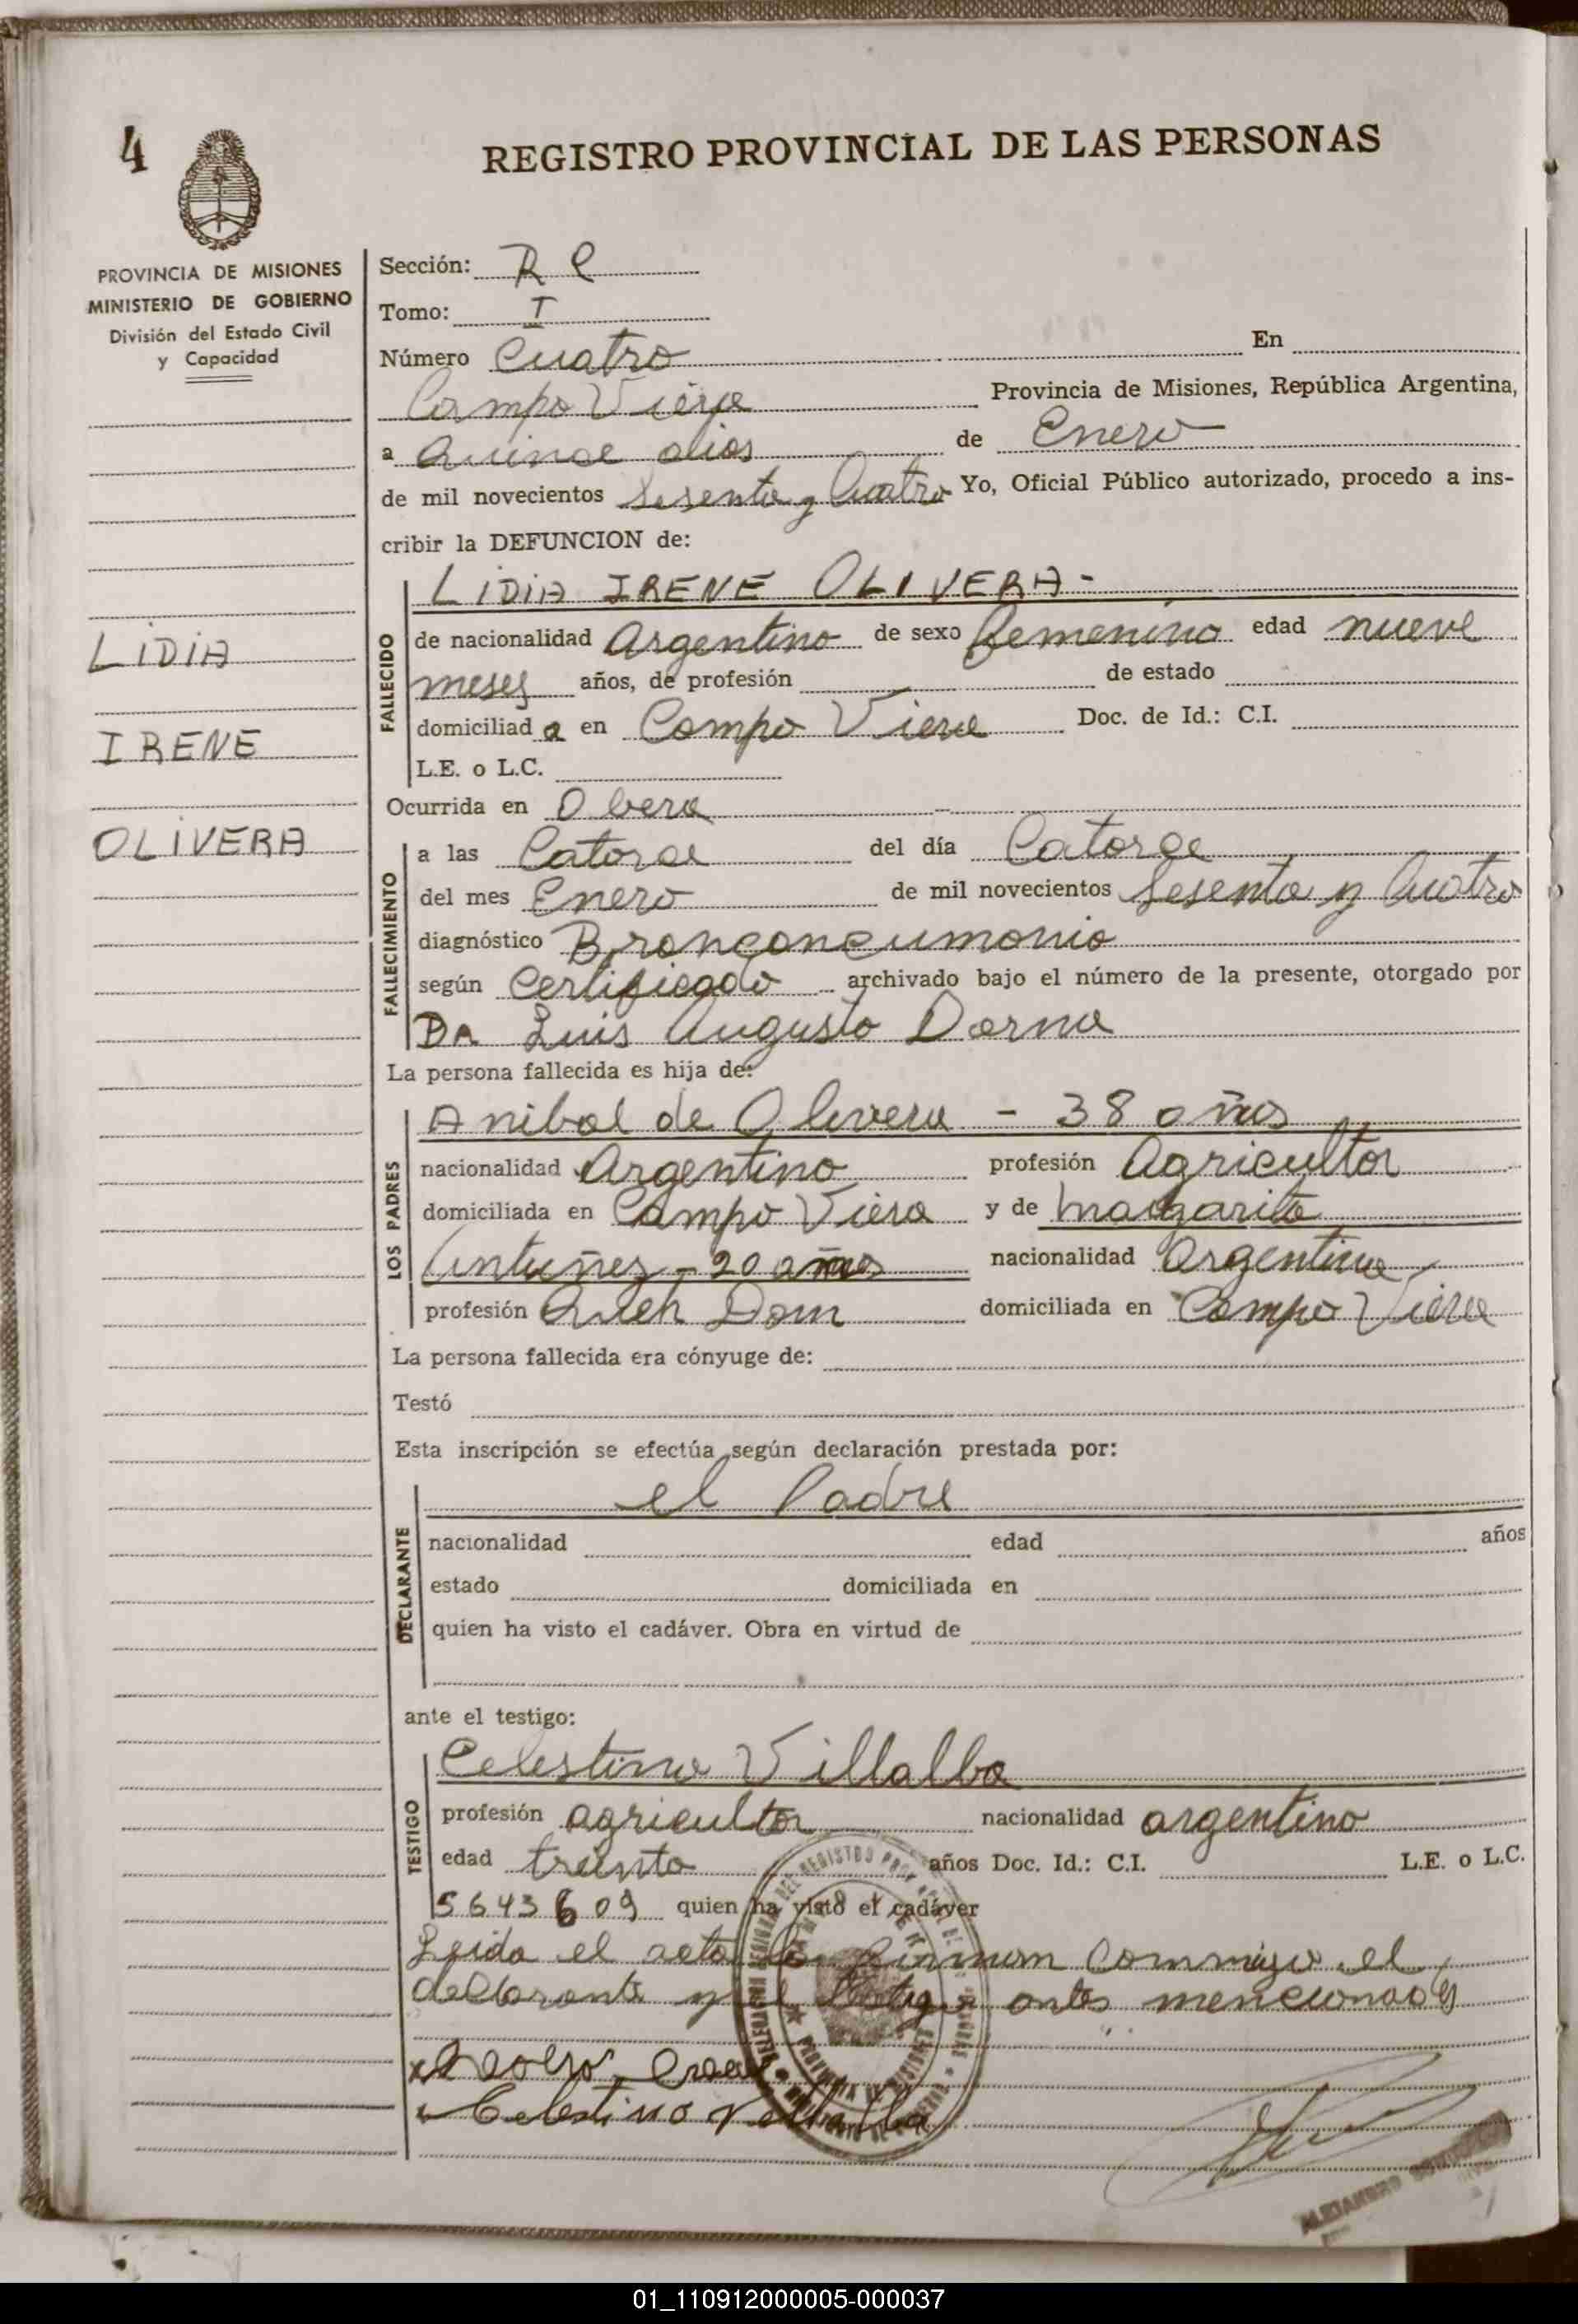 4
REGISTRO PROVINCIAL DE LAS PERSONAS
PROVINCIA DE MISIONES
MINISTERIO DE GOBIERNO
División del Estado Civil
y Capacidad
LIDIA
IRENE
OLIVERA
Sección: R C
Tomo: I
Número Cuatro En
Campo Viera Provincia de Misiones, República Argentina,
a Quince dias de Enero
de mil novecientos Sesenta y Cuatro Yo, Oficial Público autorizado, procedo a ins-
cribir la DEFUNCION de:
FALLECIDO
LIDIA IRENE OLIVERA -
de nacionalidad Argentino de sexo femenino edad nueve
meses años, de profesión de estado
domiciliad a en Campo Viera Doc. de Id.: C.I.
L.E. o L.C.
Ocurrida en Obera
FALLECIMIENTO
a las Catorce del día Catorce
del mes Enero de mil novecientos Sesenta y Cuatro
diagnóstico Bronconeumonia
según Certificado archivado bajo el número de la presente, otorgado por
DR Luis Augusto Darna
La persona fallecida es hija de:
LOS PADRES
Anibal de Olivera - 38 años
nacionalidad Argentino profesión Agricultor
domiciliada en Campo Viera y de Margarita
Antuñez - 20 años nacionalidad Argentina
profesión Queh Dom domiciliada en Campo Viera
La persona fallecida era cónyuge de:
Testó
Esta inscripción se efectúa según declaración prestada por:
DECLARANTE
el Padre
nacionalidad edad años
estado domiciliada en
quien ha visto el cadáver. Obra en virtud de
ante el testigo:
TESTIGO
Celestino Villalba
profesión agricultor nacionalidad argentino
edad treinta años Doc. Id.: C.I. L.E. o L.C.
5643609 quien ha visto el cadáver
Leida el acta la firman conmigo el
declarante y el testigo antes mencionados
Celestino Villalba
ALEJANDRO
01_110912000005-000037